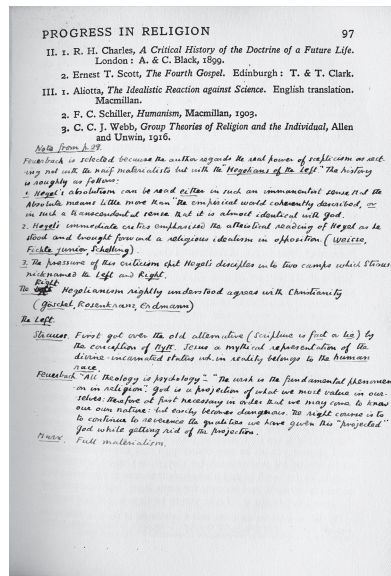 PROGRESS IN RELIGION 97
II. 1. R. H. Charles, A Critical History of the Doctrine of a Future Life.
London : A. & C. Black, 1899.
2. Ernest T. Scott, The Fourth Gospel. Edinburgh : T. & T. Clark.
III. 1. Aliotta, The Idealistic Reaction against Science. English translation.
Macmillan.
2. F. C. Schiller, Humanism, Macmillan, 1903.
3. C. C. J. Webb, Group Theories of Religion and the Individual, Allen
and Unwin, 1916.
Note from p. 29.
Feuerbach is selected because the author regards the real power of scepticism as rest-
ing not with the naif materialists but with the "Hegelians of the Left" The history
is roughly as follows:
1. Hegel's absolutism can be read either in such an immanental sense that the
Absolute means little more than "the empirical world coherently described, or
in such a transcendental sense that it is almost identical with God.
2. Hegel's immediate critics emphasised the atheistical reading of Hegel as he
stood and brought forward a religious idealism in opposition. (Weisse,
Fichte junior, Schelling)
3. The pressure of this criticism split Hegel's disciples into two camps which Strauss
nicknamed the Left and Right.
Right
The Hegelianism rightly understood agrees with Christianity
(Göschel, Rosenkranz, Erdmann)
The Left.
Strauss. First got over the old alternative (Scripture is fact or lie) by
the conception of Myth. Jesus a mythical representation of the
divine-incarnated status wh. in reality belongs to the human
race.
Feuerbach "All Theology is psychology" - "The wish is the fundamental phenomen-
on in religion". God is a projection of what we most value in our-
selves: therefore at first necessary in order that we may come to know
our own nature: but easily becomes dangerous. The right course is to
to continue to reverence the qualities we have given this "projected"
God while getting rid of the projection.
Marx. Full materialism.